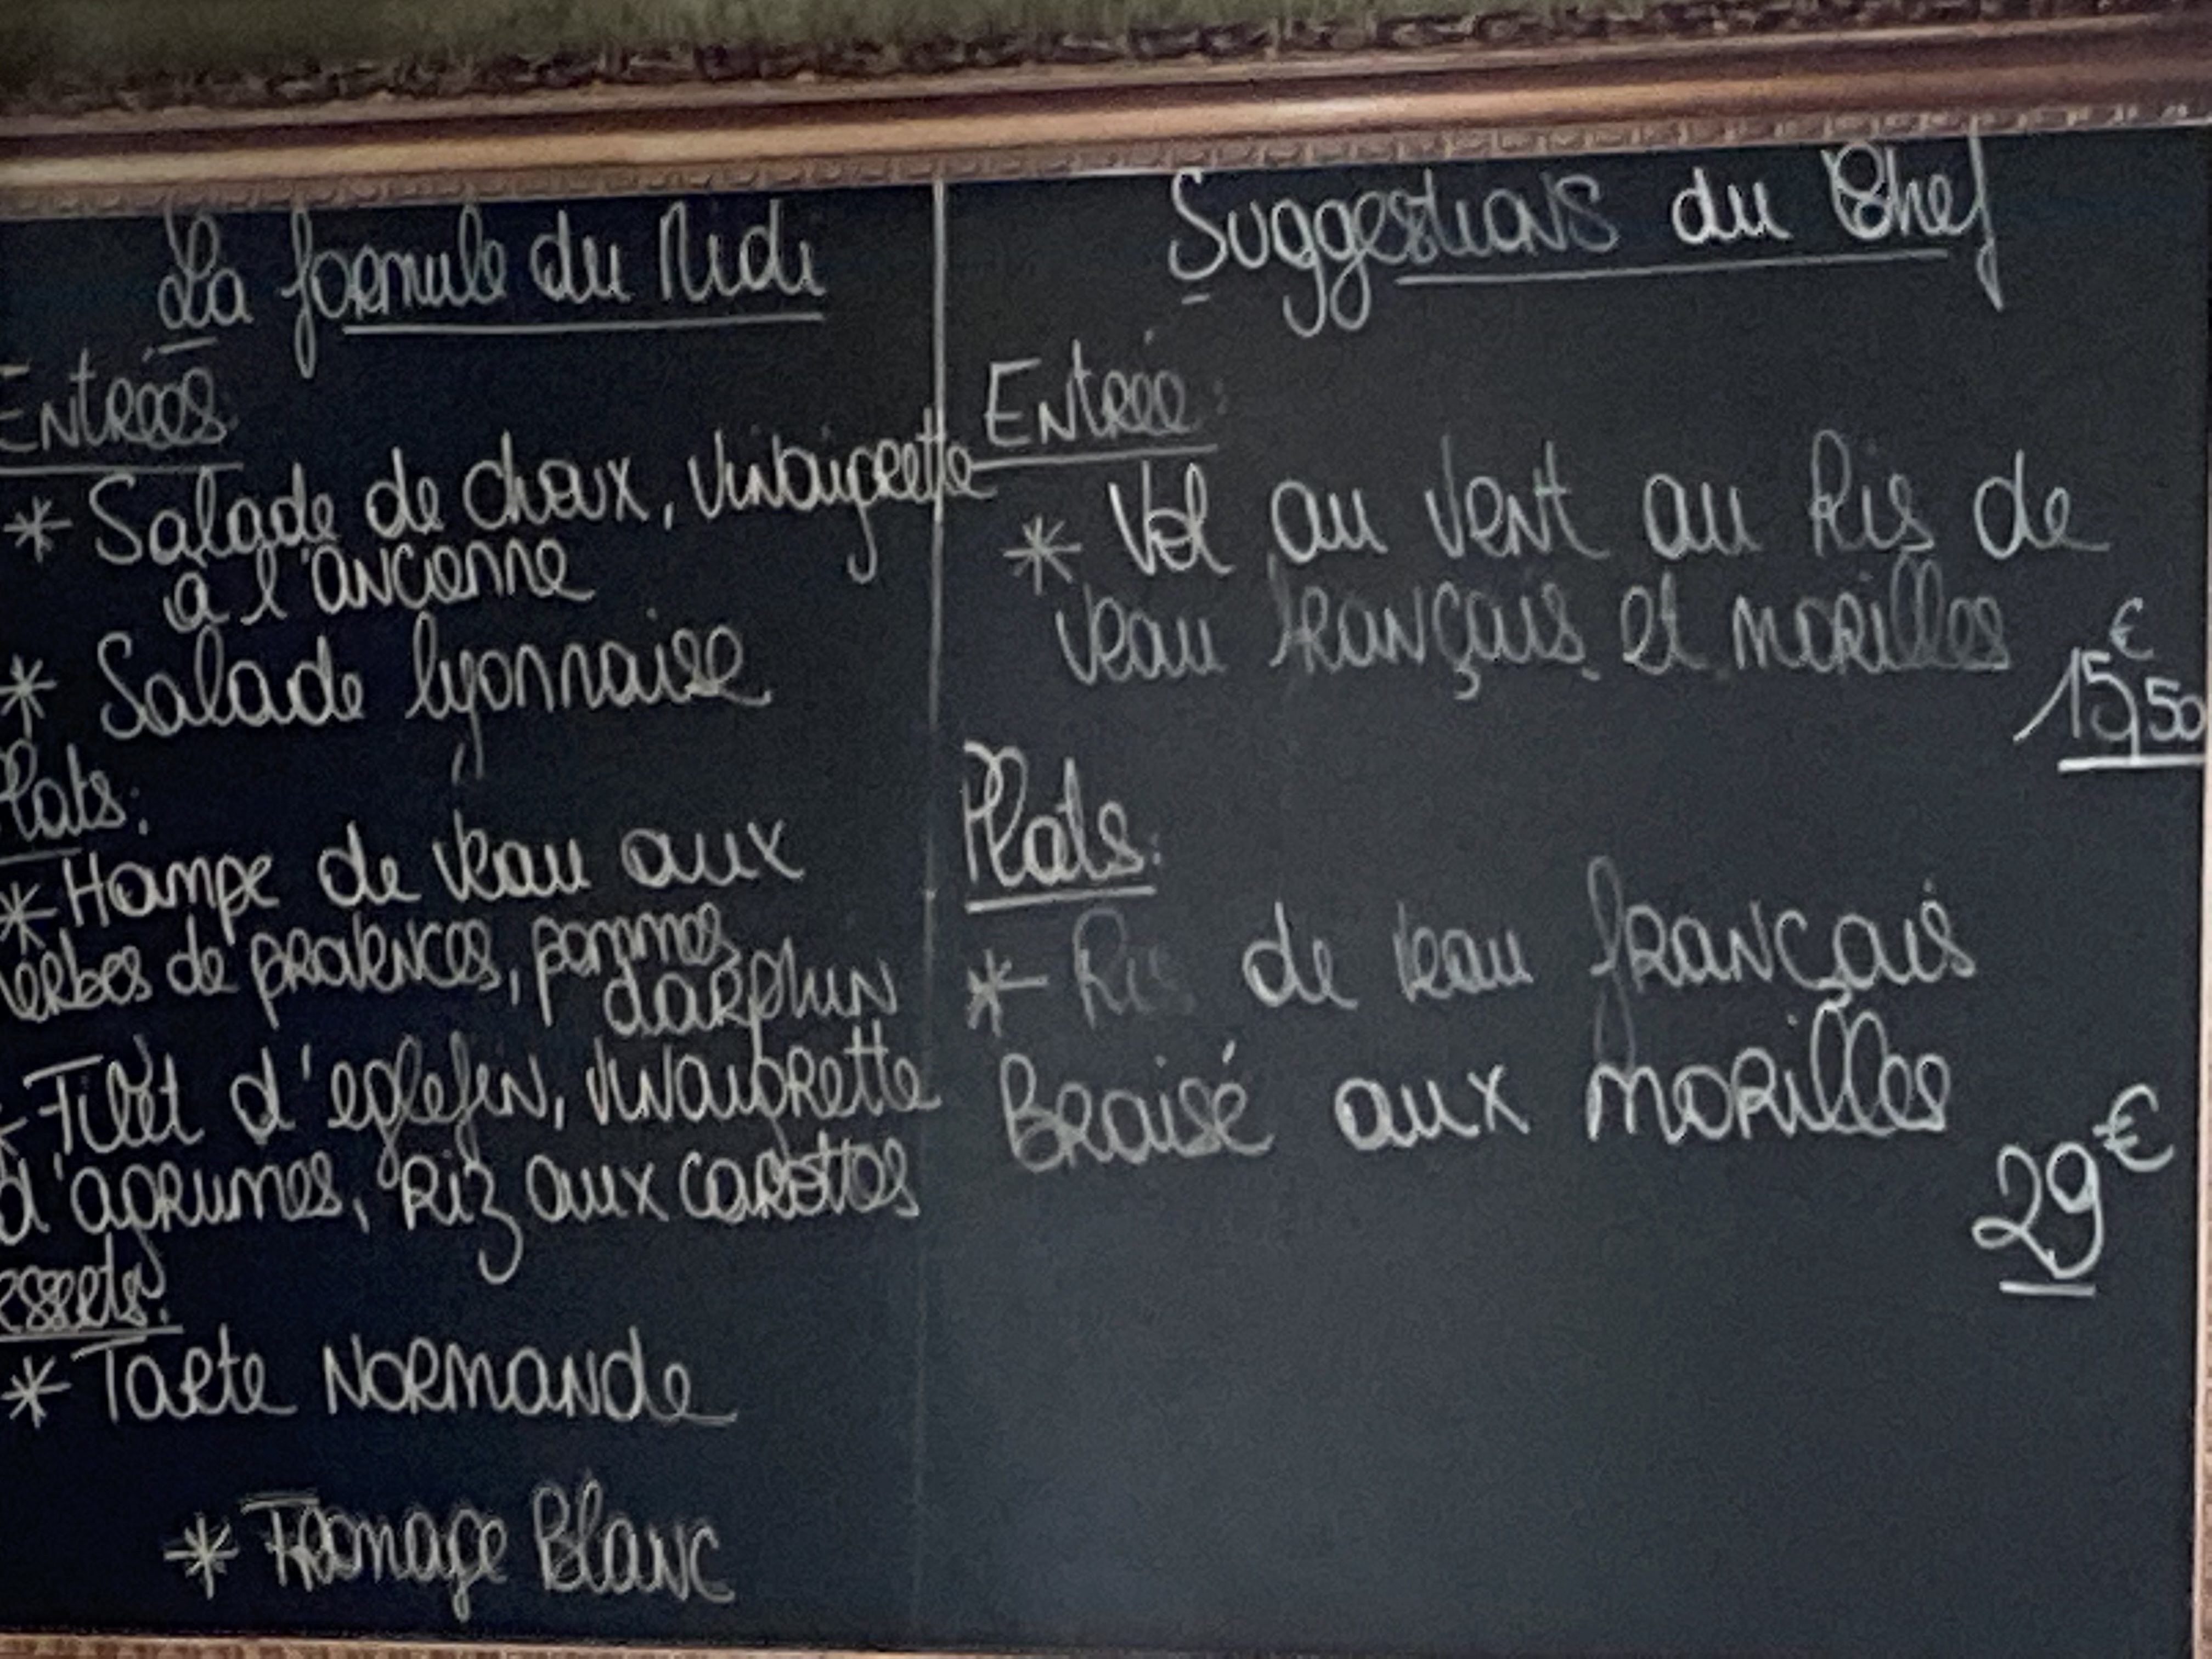 La formule du Midi
Entrées
* Salade de choux, vinaigrette
à l'ancienne
* Salade lyonnaise
Plats:
* Hampe de veau aux
herbes de provences, pommes
darphin
* Filet d'eglefin, vinaigrette
d'agrumes, riz aux carottes
essets:
* Tarte Normande
* Fromage Blanc
Suggestions du Chef
Entrée:
* Vol au vent au Ris de
veau français et morilles
15,50€
Plats:
* Ris de veau français
Braisé aux morilles
29€